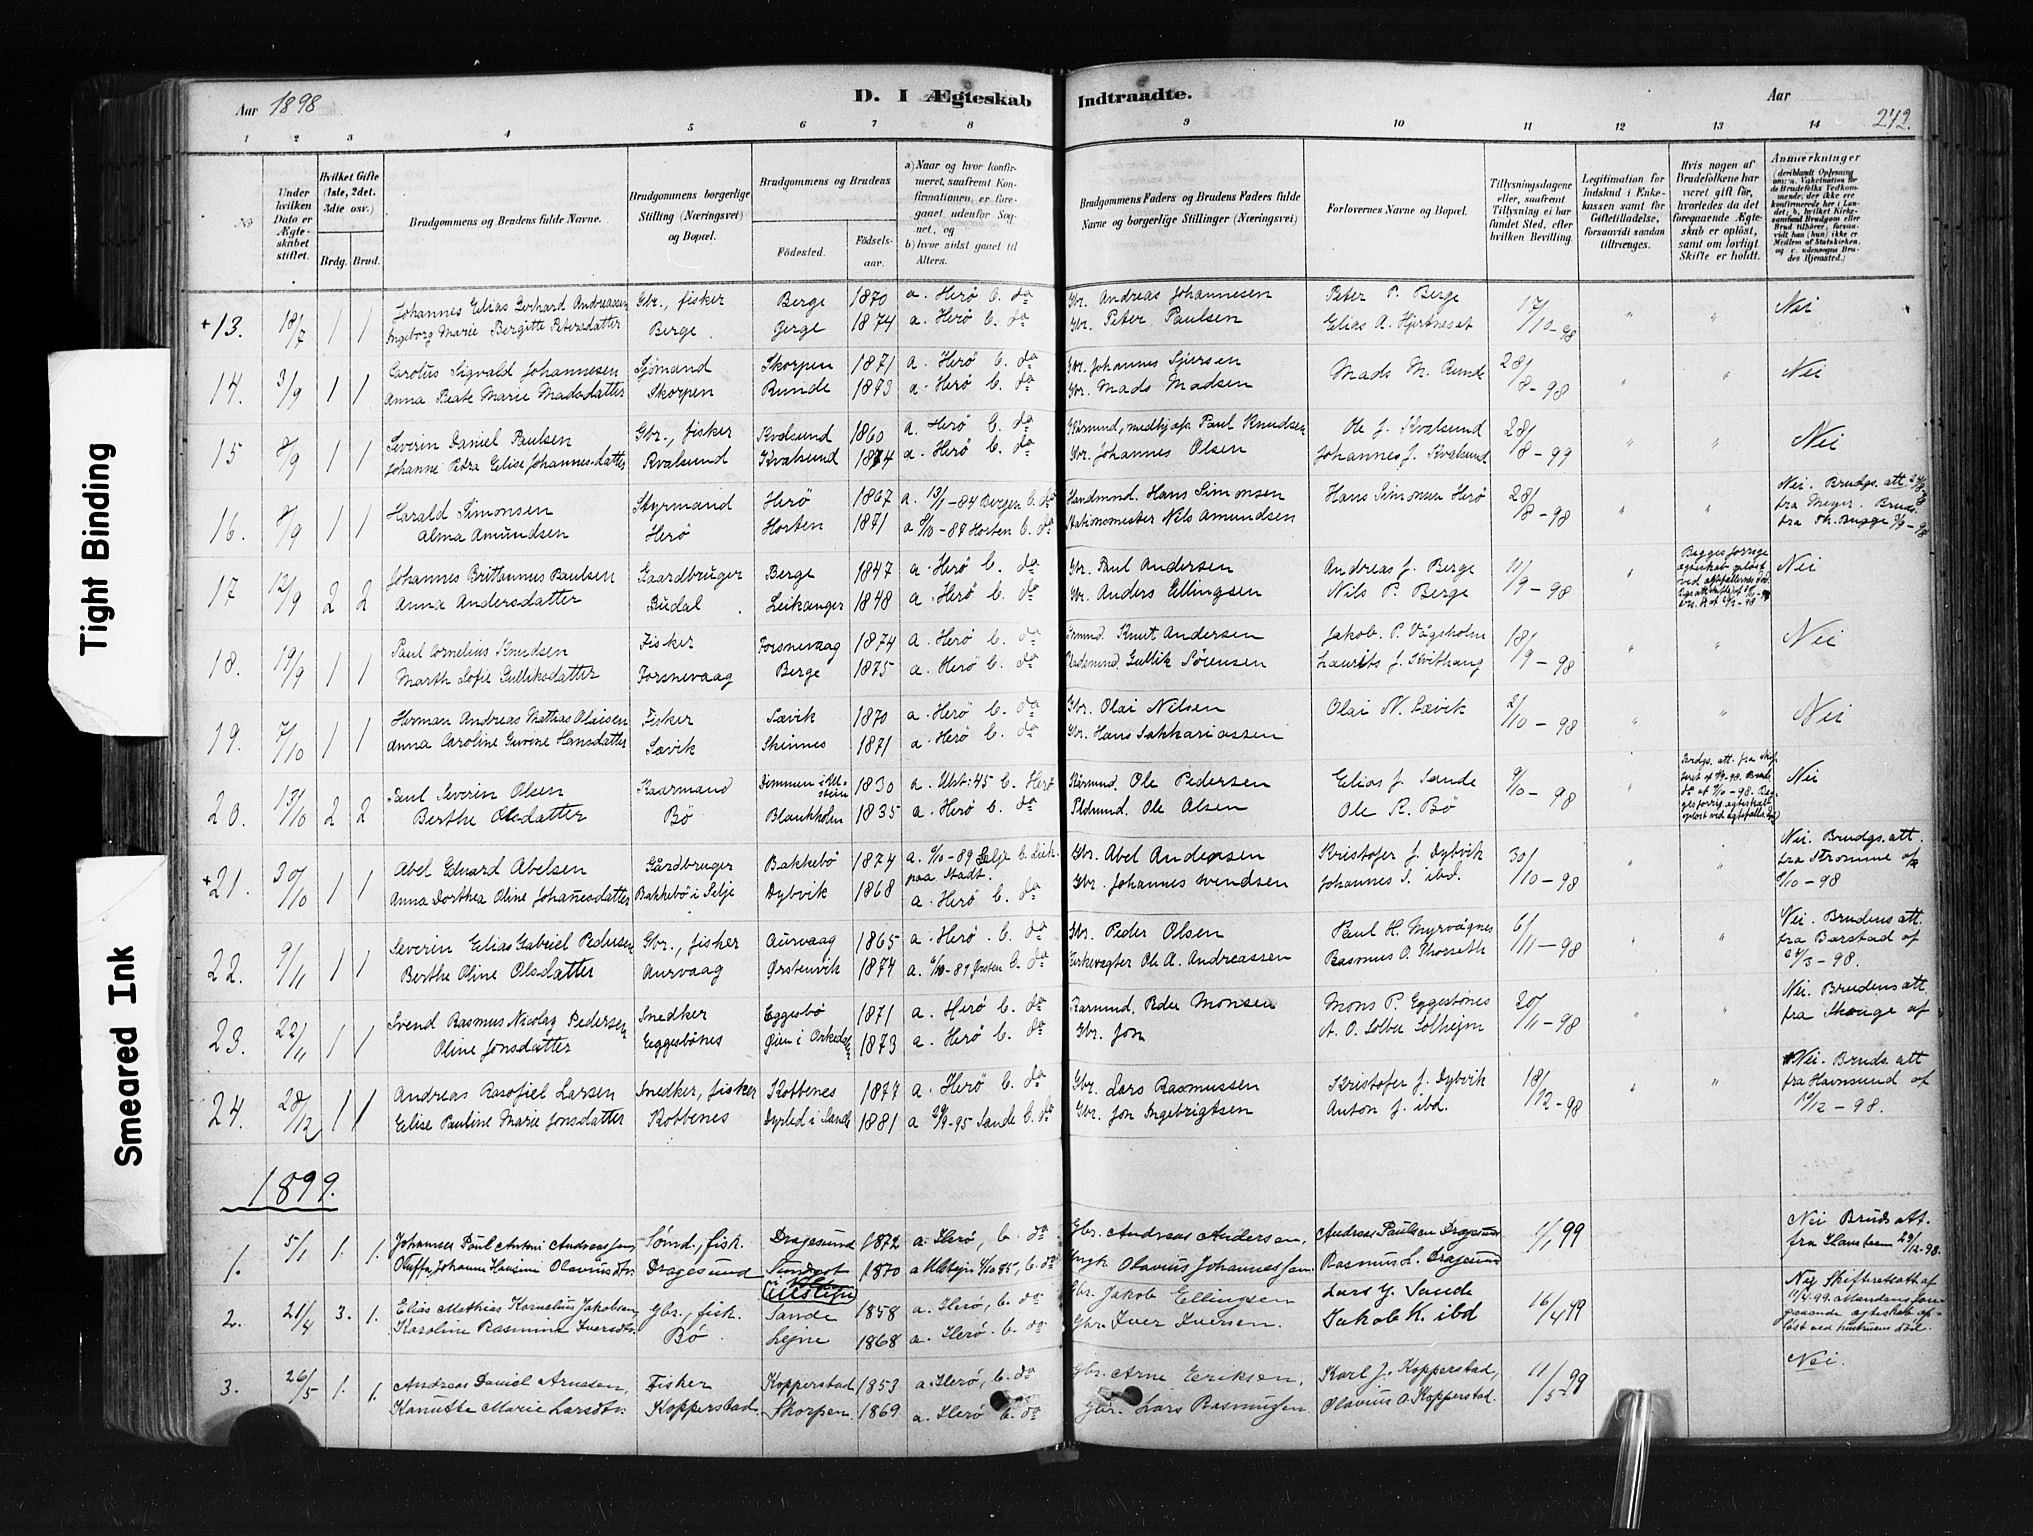 Aar 1898
D. I Ægteskab Indtraadte.
Aar
242.
1 2 3 4 5 6 7 8 9 10 11 12 13 14
No
Under hvilken Dato er Ægteskabet stiftet.
Hvilket Gifte (1ste, 2det, 3dte osv.)
Brdg. Brud.
Brudgommens og Brudens fulde Navne.
Brudgommens borgerlige Stilling (Næringsvei) og Bopæl.
Brudgommens og Brudens
Födested.
Födselsaar.
a) Naar og hvor konfirmeret, saafremt Konfirmationen er foregaaet udenfor Sognet, og
b) hvor sidst gaaet til Alters.
Brudgommens Faders og Brudens Faders fulde Navne og borgerlige Stillinger (Næringsvei)
Forlovernes Navne og Bopæl.
Tillysningsdagene eller, saafremt Tillysning ei har fundet Sted, efter hvilken Bevilling.
Legitimation for Indskud i Enkekassen samt for Giftetilladelse, forsaavidt saadan tiltrænges.
Hvis nogen af Brudefolkene har været gift för, hvorledes da det foregaaende Ægteskab er oplöst, samt om lovligt Skifte er holdt.
Anmærkninger
+13. 18/7 1 1 Johannes Elias Gerhard Andreassen Gbr., fisker Berge 1870 a. Herø b. do Gbr. Andreas Johannesen Peter P. Berge 17/10-98 " " Nei
Ingeborg Marie Bergitte Petersdatter Berge Gerge 1874 a. Herø b. do Gbr. Peter Paulsen Elias A. Hjertneset
14. 3/9 1 1 Carolus Sigvald Johannesen Sjømand Skorpen 1871 a. Herø b. do Gbr. Johannes Sjursen Mads M. Runde 28/8-98 " " Nei
Anna Beate Marie Madsdatter Skorpen Runde 1873 a. Herø b. do Gbr. Mads Madsen
15 8/9 1 1 Severin Daniel Paulsen Gbr., fisker Kvalsund 1860 a. Herø b. do Paul Knudsen Ole J. Kvalsund 28/8-99 " " Nei
Johanne Petra Elise Johannesdatter Kvalsund Kvalsund 1874 a. Herø b. do Gbr. Johannes Olsen Johannes J. Kvalsund
16. 8/9 1 1 Harald Simonsen Styrmand Herø 1867 a. 13/1-84 Bergen b. do Handmnd. Hans Simonsen Hans Simonsen Herø 28/8-98 " " Nei. Brudgs. att.
Alma Amundsen Herø Horten 1871 Horten b. do Stationsmester Nils Amundsen fra Meyer. Brud. fra Th. Bugge
17 12/9 2 2 Johannes Brittannus Paulsen Gaardbruger Berge 1847 a. Herø b. do Gbr. Paul Andersen Andreas J. Berge 11/9-98 " Begges forrige Nei
Anna Andersdatter Budal Leikanger 1848 a. Herø b. do Gbr. Anders Ellingsen Nils P. Berge
18. 19/9 1 1 Paul Cornelius Knudsen Fisker Fosnevaag 1874 a. Herø b. do Knut Andersen Jakob. P. Vågsholm 18/9-98 " " Nei
Marth Sofie Gulliksdatter Forsnevaag Berge 1875 a. Herø b. do Gullik Sørensen Laurits J. Kvithaug
19. 7/10 1 1 Herman Andreas Mathias Olaisen Fisker Sævik 1870 a. Herø b. do Gbr. Olai Nilsen Olai N. Sævik 2/10-98 " " Nei
Anna Caroline Guvine Hansdatter Sævik Skinnes 1871 a. Herø b. do Gbr. Hans Sakkariassen
20. 13/10 2 2 Paul Severin Olsen Kaarmand Dimmen i Ulstein 1830 a. Ulst: 45 b. Herø Ole Pedersen Elias J. Sande 9/10-98 " Nei
Berthe Olsdatter Bø Blankholm 1835 a. Herø b. do Ole Olsen Ole R. Bø
+21. 30/10 1 1 Abel Edvard Abelsen Gårdbruger Bakkebø 1874 Selje b. Leik- paa Stadt. Gbr. Abel Andersen Kristofer J. Dybvik 30/10-98 " " Nei. Brudgs. att.
Anna Dorthea Oline Johanesdatter Bakkebø i Selje Dybvik 1868 a. Herø b. do Gbr. Johannes Svendsen Johannes S. ibd. fra Strømme af 9/10-98
22. 9/11 1 1 Severin Elias Gabriel Pedersen Gbr., fisker Aurvaag 1865 a. Herø. b. do Gbr. Peder Olsen Paul H. Myrvågnes 6/11-98 " " Nei. Brudens att.
Berthe Oline Olsdatter Aurvaag Ørstenvik 1874 Ørsten b. do Kirkevægter Ole A. Andreassen Rasmus O. Thorseth fra Barstad af
23. 22/11 1 1 Svend Rasmus Nicolay Pedersen Snedker Eggesbø 1871 a. Herø b. do Peder Monsen Mons P. Eggesbønes 20/11-98 " " Nei. Brudens att.
Oline Jonsdatter Eggesbönes Øien i Orkedalen 1873 a. Herø b. do Gbr. Jon A. O. Solbu Solheim fra Skauge af
24. 28/12 1 1 Andreas Rasofiel Larsen Snedker, fisker Kobbenes 1877 a. Herø b. do Gbr. Lars Rasmussen Kristofer J. Dybvik 18/12-98 " " Nei. Bruds. att
Elise Pauline Marie Jonsdatter Kobbenes Dyrled i Sande 1881 Sande b. do Gbr. Jon Ingebrigtsen Anton J. ibd. fra Havnsund af 10/12-98.
1899.
1. 5/1 1. 1. Johannes Paul Antoni Andreassen Lømd., fisk. Dragesund 1872 a. Herø, b. do Gbr. Andreas Andersen, Andreas Paulsen Dragesund 1/1 99 Nei Bruds att.
Oluffa Johanne Hansine Olaviusdtr Dragesund Ulstein 1870 a Ulstein 4/10 85, b. do Olavius Johannessen Rasmus L. Dragesund fra Hansteen 29/12-98.
2. 21/4 3. 1. Elias Mathias Kornelius Jakobsen Gbr., fisk. Sande 1858 a. Herø, b. do Gbr. Jakob Ellingsen Lars G. Sande 16/4 99 Nej Skifteretsatt af
Karoline Rasmine Iversdtr. Bø Lejne 1868 a. Herø. b. do Gbr. Iver Iversen. Jakob K. ibd 11/4.99. Mandens foregaaende ægteskab opløst ved hustruens død.
3. 26/5 1. 1. Andreas Daniel Arnesen, Fisker Kopperstad 1853 a. Herø, b. do Gbr. Arne Eriksen. Karl J. Kopperstad, 11/5 99 Nei.
Kanutte Marie Larsdtr. Kopperstad. Skorpen. 1869 a. Herø b. do Gbr. Lars Rasmussen Olavius A. Kopperstad.
Tight Binding
Smeared Ink